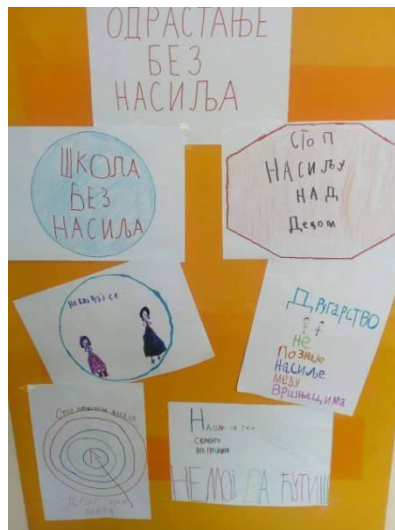 ОДРАСТАЊЕ
БЕЗ
НАСИЉА
ШКОЛА
БЕЗ
НАСИЉА
СТОП
НАСИЉУ
НАД
Децом
Другарство
не
Познаје
насиље
међу
Вршњацима
ДРУГ НИЈЕ
МЕТА
НЕМОЈ ДА ЋУТИШ